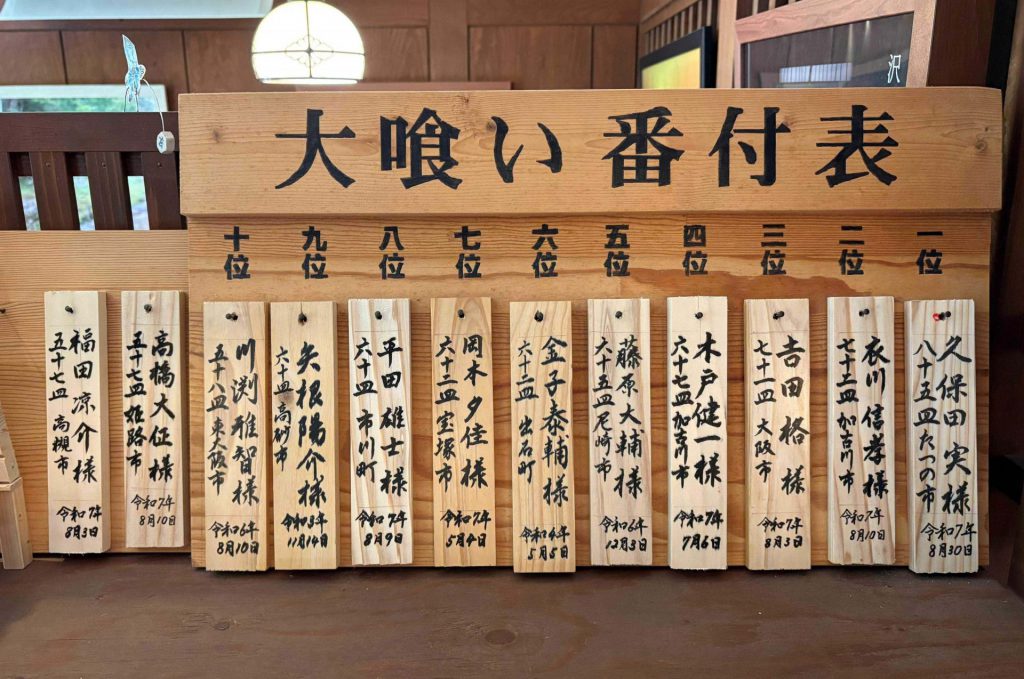 大喰い番付表
沢
一位
久保田実様
八十五皿たつの市
令和7年
8月30日
二位
衣川信孝様
七十二皿 加古川市
令和7年
8月10日
三位
吉田格様
七十一皿 大阪市
令和7年
8月3日
四位
木戸健一様
六十七皿加古川市
令和7年
7月6日
五位
藤原大輔様
六十五皿尼崎市
令和6年
12月3日
六位
金子泰輔様
六十二皿 出石町
令和4年
5月5日
七位
岡本夕佳様
六十二皿 宝塚市
令和7年
5月4日
八位
平田雄士様
六十皿 市川町
令和7年
8月9日
九位
矢根陽介様
六十皿 高砂市
令和3年
11月14日
十位
川渕雅智様
五十八皿東大阪市
令和6年
8月10日
高橋大征様
五十七皿 姫路市
令和7年
8月10日
福田凉介様
五十七皿 高槻市
令和7年
8月3日